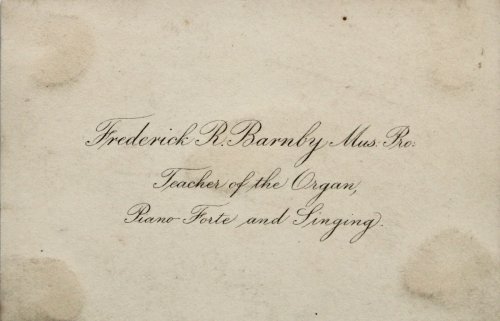 Frederick R. Barnby Mus. Pro.
Teacher of the Organ,
Piano-Forte and Singing.